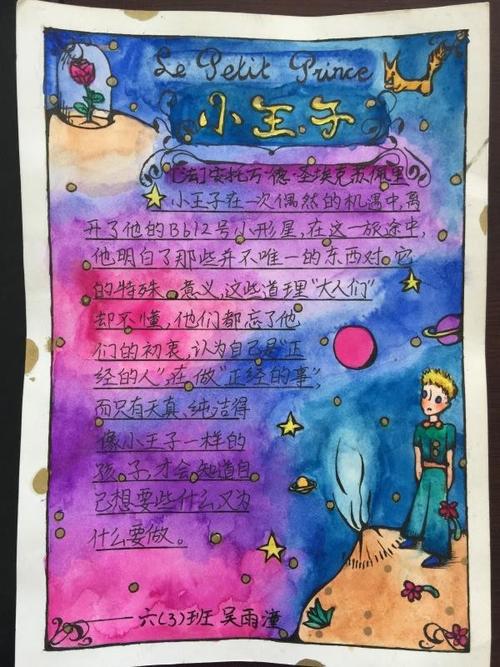 Le Petit Prince
小王子
[法]安托万·德·圣埃克苏佩里
小王子在一次偶然的机遇中,离
开了他的B612号小形星,在这一旅途中,
他明白了那些并不唯一的东西对它
的特殊意义,这些道理“大人们”
却不懂,他们都忘了他
们的初衷,认为自己是“正
经的人”,在做“正经的事”,
而只有天真、纯洁得
像小王子一样的
孩子,才会知道自
己想要些什么,又为
什么要做。
——六(3)班 吴雨潼